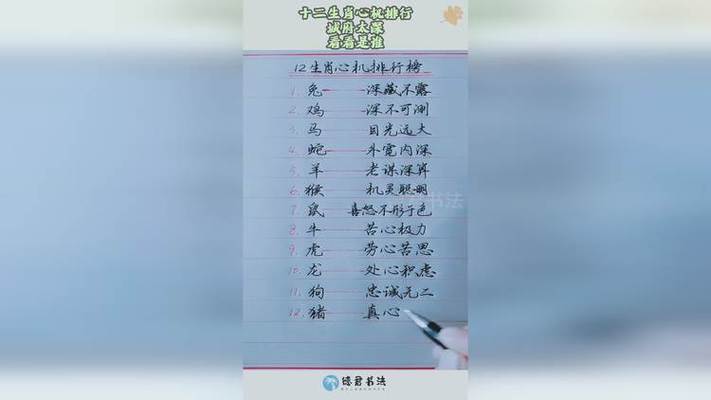 十二生肖心机排行
城府太深
看看是谁
12生肖心机排行榜
1. 兔——深藏不露
2. 鸡——深不可测
3. 马——目光远大
4. 蛇——外宽内深
5. 羊——老谋深算
6. 猴——机灵聪明
7. 鼠——喜怒不形于色
8. 牛——苦心极力
9. 虎——劳心苦思
10. 龙——处心积虑
11. 狗——忠诚无二
12. 猪——真心
德君书法